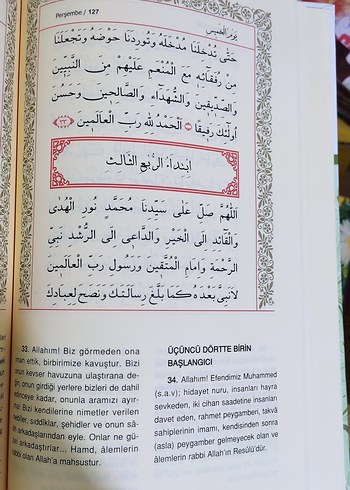 Perşembe / 127
يَوْمُ الْخَمِيسِ
حَتّٰى تُدْخِلَنَا مُدْخَلَهُ وَتُورِدَنَا حَوْضَهُ وَتَجْعَلَنَا
مِنْ رُفَقَائِهِ مَعَ الْمُنْعَمِ عَلَيْهِمْ مِنَ النَّبِيِّينَ
وَالصِّدِّيقِينَ وَالشُّهَدَاءِ وَالصَّالِحِينَ وَحَسُنَ
أُولٰئِكَ رَفِيقًا اَلْحَمْدُ لِلّٰهِ رَبِّ الْعَالَمِينَ ﴿٣٣﴾
اِبْتِدَاءُ الرُّبُعِ الثَّالِثِ
اَللّٰهُمَّ صَلِّ عَلٰى سَيِّدِنَا مُحَمَّدٍ نُورِ الْهُدٰى
وَالْقَائِدِ اِلَى الْخَيْرِ وَالدَّاعِى اِلَى الرُّشْدِ نَبِيِّ
الرَّحْمَةِ وَاِمَامِ الْمُتَّقِينَ وَرَسُولِ رَبِّ الْعَالَمِينَ
لَا نَبِيَّ بَعْدَهُ كَمَا بَلَّغَ رِسَالَتَكَ وَنَصَحَ لِعِبَادِكَ
33. Allahım! Biz görmeden ona
man ettik, birbirimize kavuştur. Bizi
onun kevser havuzuna ulaştırana de-
ğin, onun girdiği yerlere bizleri de dahil
edinceye kadar, onunla aramızı ayır-
ma! Bizi kendilerine nimetler verilen
beyler, sıddîklar, şehidler ve onun sâ-
arkadaşlarından eyle. Onlar ne gü-
arkadaştırlar... Hamd, âlemlerin
bi olan Allah'a mahsustur.
ÜÇÜNCÜ DÖRTTE BİRİN
BAŞLANGICI
34. Allahım! Efendimiz Muhammed
(s.a.v); hidayet nuru, insanları hayra
sevkeden, iki cihan saadetine insanları
davet eden, rahmet peygamberi, takvâ
sahiplerinin imamı, kendisinden sonra
(asla) peygamber gelmeyecek olan ve
âlemlerin rabbi Allah'ın Resûlü'dür.